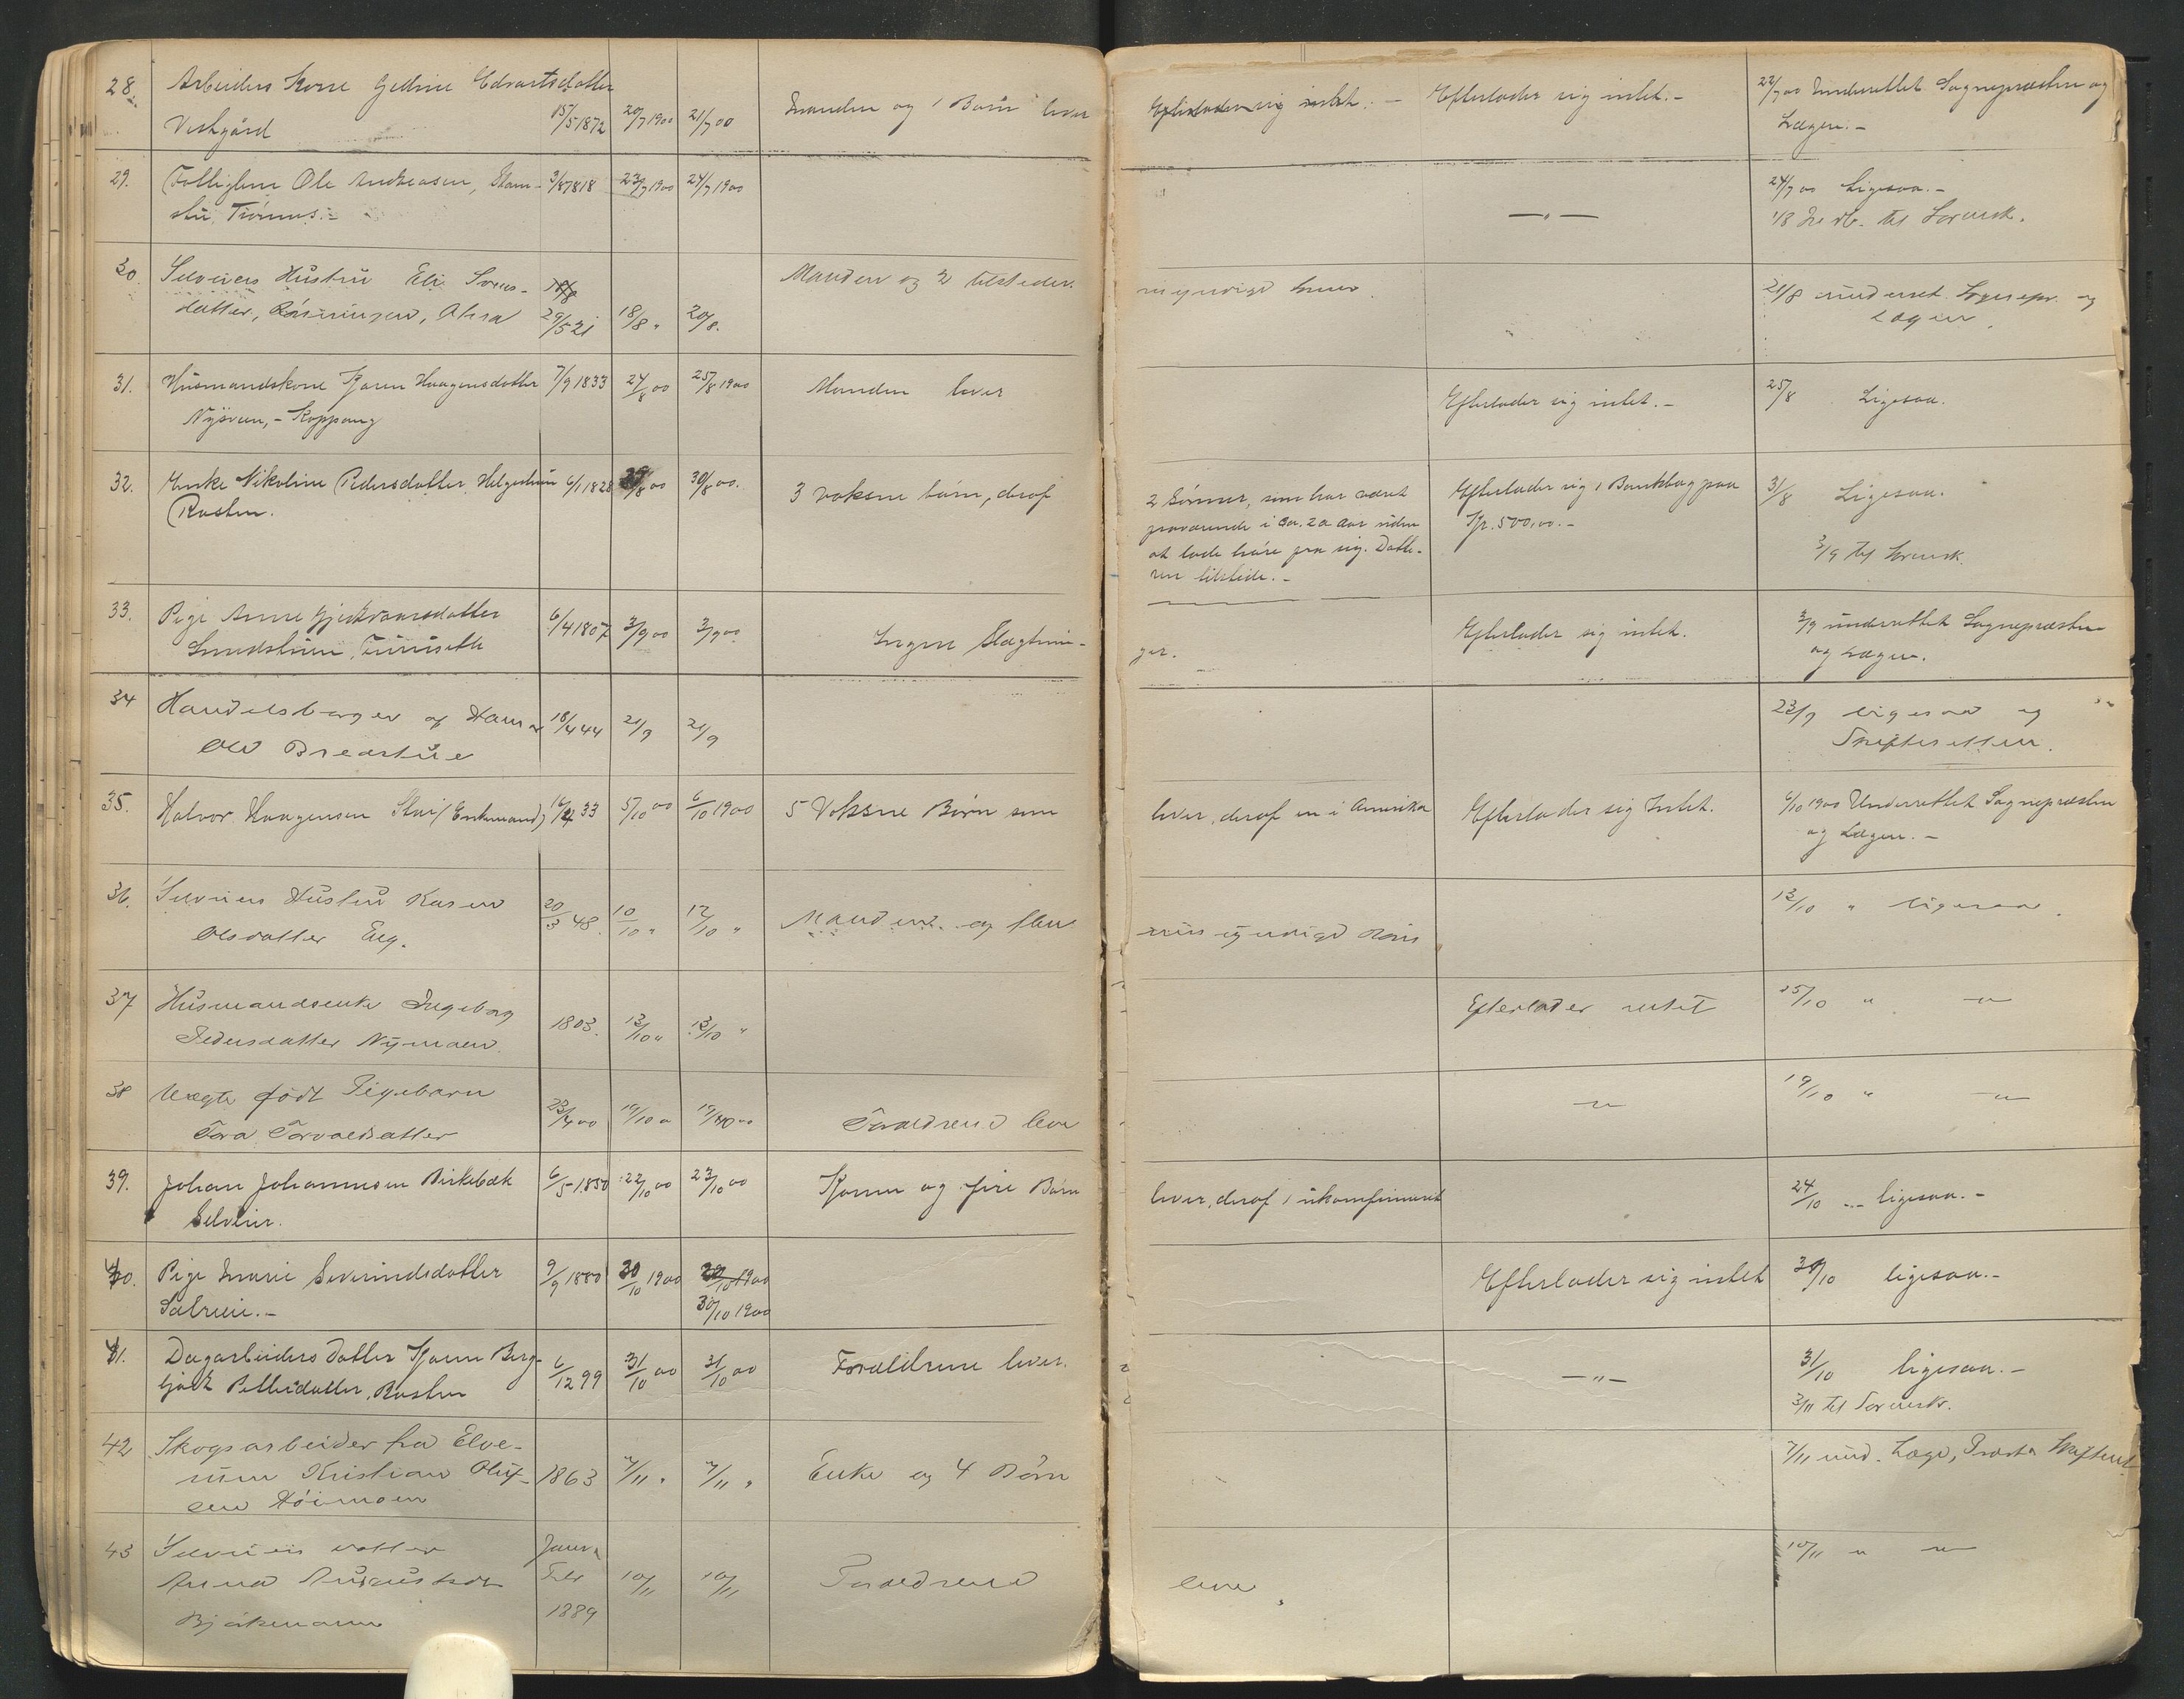 28. Arbeiders Kone Gelline Edvartsdatter
Vestgård 15/5 1872 20/7 1900 21/7 00 Manden og 1 Barn lever Efterlader sig intet. - Efterlader sig intet. - 22/7 00 Underrettet Sognepræsten og
Lægen. -
29. Fattiglem Ole Andreasen, 3/8 1818 23/7 1900 24/7 1900 — " — 24/7 00 Ligesaa. -
1/8 til Sorensk.
30 Selveiers Hustru Eli Svens- Manden og 2 tilsteder. umyndige 21/8 underret. Sognepr. og
datter, 29/5 21 18/8 " 20/8. Lægen.
31. Husmandskone Karen Haagensdatter 7/9 1833 24/8 00 25/8 1900 Manden lever Efterlader sig intet. - 25/8 Ligesaa.
Nysveen, - Koppang
32. Enke Nikoline Pedersdatter Helgestuen 6/1 1828 29/8 00 30/8 00. 3 voksne børn, deraf 2 Sønner, som har været Efterlader sig 1 Bankbog paa 31/8 Ligesaa.
Rasten. fraværende i ca. 20 aar uden Kr. 500,00. -
at lade høre fra sig. Datte- 3/9 til Sorensk.
ren tilstede. -
33. Pige Anne Gjertraansdatter 6/4 1807 3/9 00 3/9 00 Ingen Slægtnin- ger. Efterlader sig intet. 3/9 underrettet Sognepræsten
og Lægen.
34 Handelsborger af Hamar 18/4 44 21/9 21/9 23/9 ligesaa og
Ole Bredstue Skifteretten.
35. Halvor Haagensen Stai (Enkemand) 33 5/10 00 6/10 1900 5 Voksne Børn som lever, deraf en i Amerika Efterlader sig Intet. 6/10 1900 Underrettet Sognepræsten
og Lægen. -
36. Selveiers Hustru Karen 20/3 48. 10/10 " 12/10 " Manden og flere umyndige Børn 12/10 " ligesaa.
Olsdatter Eng.
37 Husmandsenke Ingeborg 1803. 12/10 " 13/10 " Efterlader intet 15/10 " — " —
Pedersdatter Nymoen.
38 Uægte født Pigebarn 19/10 " Forældrene lever — " — 19/10 " — " —
Tora Torvaldsdatter
39. Johan Johannesen Birkebæk 6/5 1850 22/10 00 23/10 00 Konen og fire Børn lever, deraf 1 ukonfirmeret 24/10 ligesaa. -
Selveier.
40. Pige Marie Severinsdatter 9/9 1880 30/10 1900 30/10 1900 Efterlader sig intet 30/10 ligesaa. -
30/10 1900
41. Dagarbeiders datter Karen Berg- 6/12 99 31/10 00 31/10 00 Forældrene lever. — " — 31/10 ligesaa. -
ljot Pettersdatter, Rasten 3/11 til Sorensk.
42 Skogsarbeider fra Elve- 7/11 und. Læge, Præst & Skifteret
rum Kristian Oluf- 1863 7/11 " 7/11 " Enke og 4 Børn
sen Høimoen
43 Selveiers datter Janr. 10/11 " — " —
Anna Febr 10/11 10/11 Forældrene lever.
1889